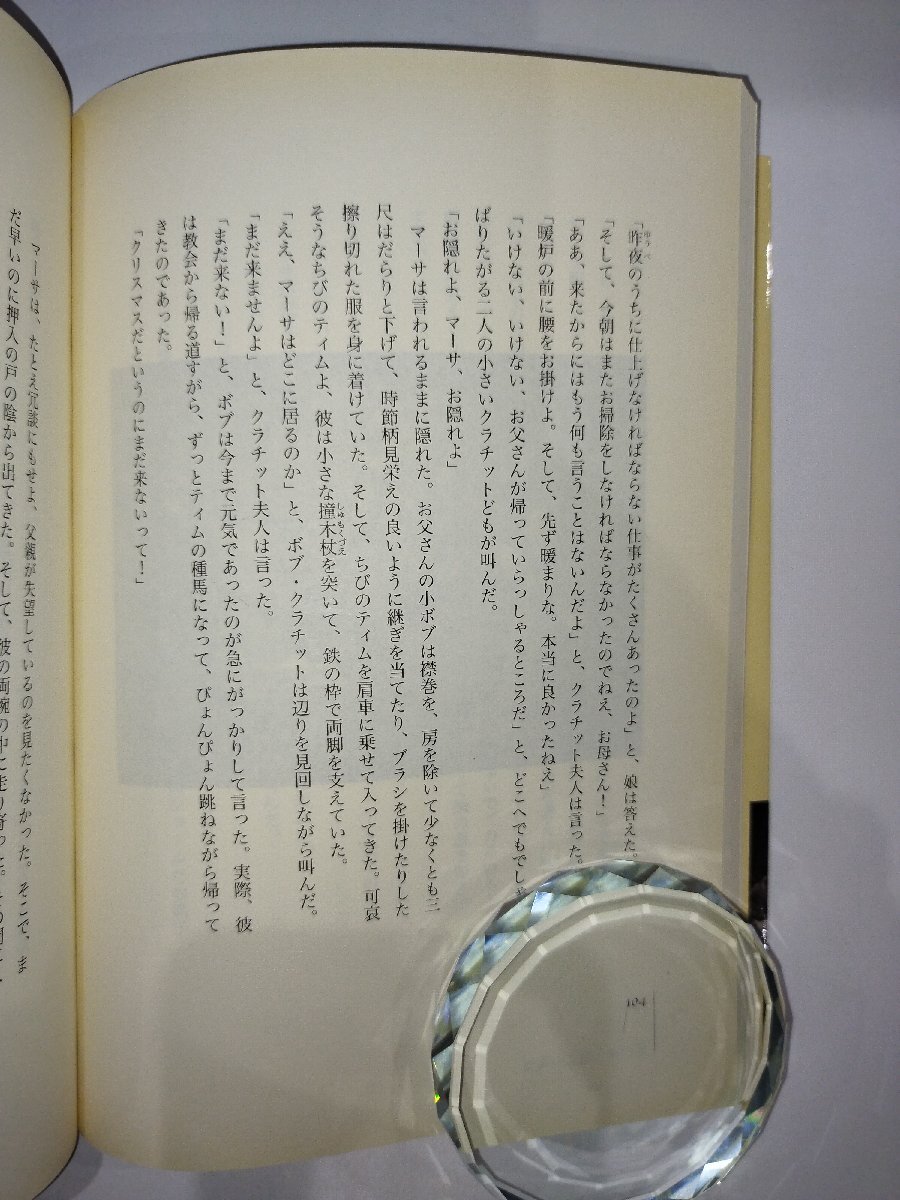 「昨夜のうちに仕上げなければならない仕事がたくさんあったのよ」と、娘は答えた。
ゆうべ
「そして、今朝はまたお掃除をしなければならなかったのでねえ、お母さん！」
「ああ、来たからにはもう何も言うことはないんだよ」と、クラチット夫人は言った。
「暖炉の前に腰をお掛けよ。そして、先ず暖まりな。本当に良かったねえ」
「いけない、いけない、お父さんが帰っていらっしゃるところだ」と、どこへでもでしゃ
ばりたがる二人の小さいクラチットどもが叫んだ。
「お隠れよ、マーサ、お隠れよ」
マーサは言われるままに隠れた。お父さんの小ボブは襟巻を、房を除いて少なくとも三
尺はだらりと下げて、時節柄見栄えの良いように継ぎを当てたり、ブラシを掛けたりした
擦り切れた服を身に着けていた。そして、ちびのティムを肩車に乗せて入ってきた。可哀
そうなちびのティムよ、彼は小さな撞木杖を突いて、鉄の枠で両脚を支えていた。
しゅもくづえ
「ええ、マーサはどこに居るのか」と、ボブ・クラチットは辺りを見回しながら叫んだ。
「まだ来ませんよ」と、クラチット夫人は言った。
「まだ来ない！」と、ボブは今まで元気であったのが急にがっかりして言った。実際、彼
は教会から帰る道すがら、ずっとティムの種馬になって、ぴょんぴょん跳ねながら帰って
きたのであった。
「クリスマスだというのにまだ来ないって！」
マーサは、たとえ冗談にもせよ、父親が失望しているのを見たくなかった。そこで、ま
だ早いのに押入の戸の陰から出てきた。そして、彼の両腕の中に走り寄った。
104